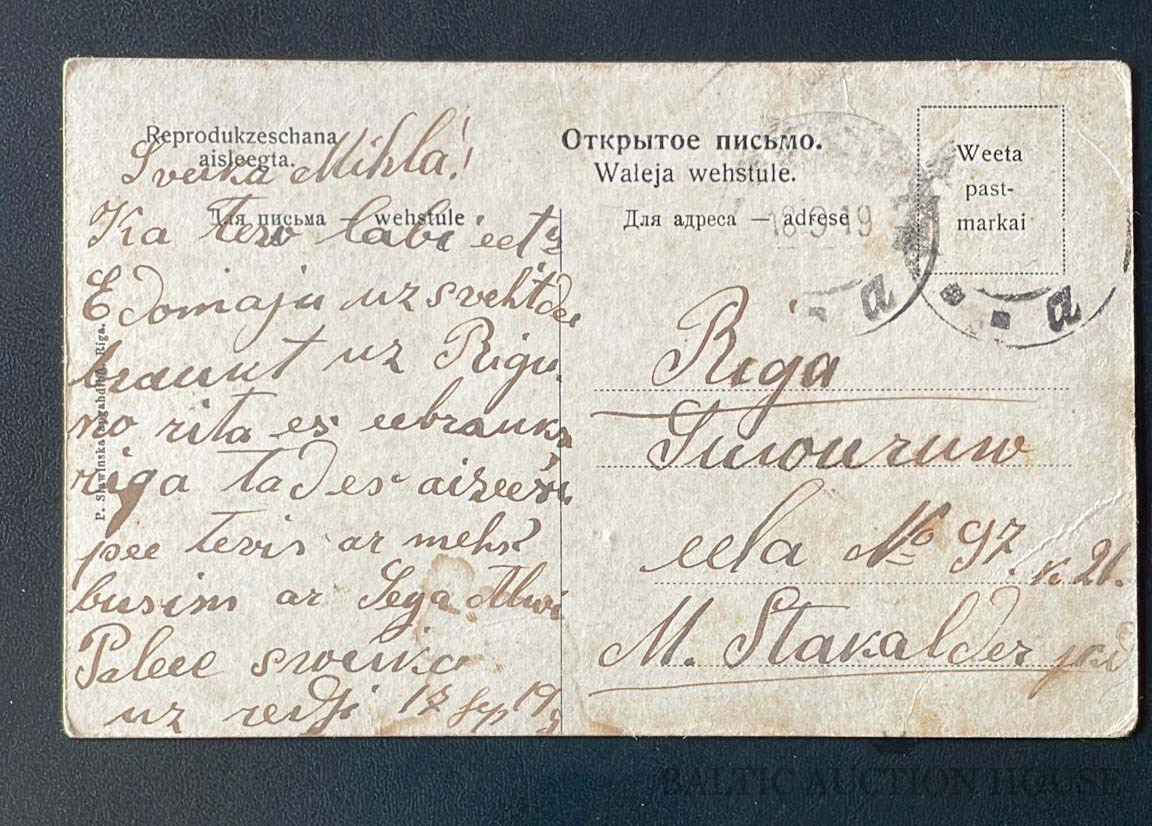 Reprodukzeschana
aisleegta.
Sveika Mihla!
Для письма — wehstule
Ka tew labi eet
Edomaju uz svehtde
braukt uz Rigu
no rita es eebrauks
riga tad es aizee
pee tevis ar mehs
busim ar
Paleec sweika
uz redsi 17 sep 19
P. Slawinska apgahdibā, Riga.
Открытое письмо.
Waleja wehstule.
Для адреса — adrese
18 9 19
Weeta
past-
markai
a
a
Riga
eela № 97. k. 21.
M. Stakalder
BALTIC AUCTION HOUSE